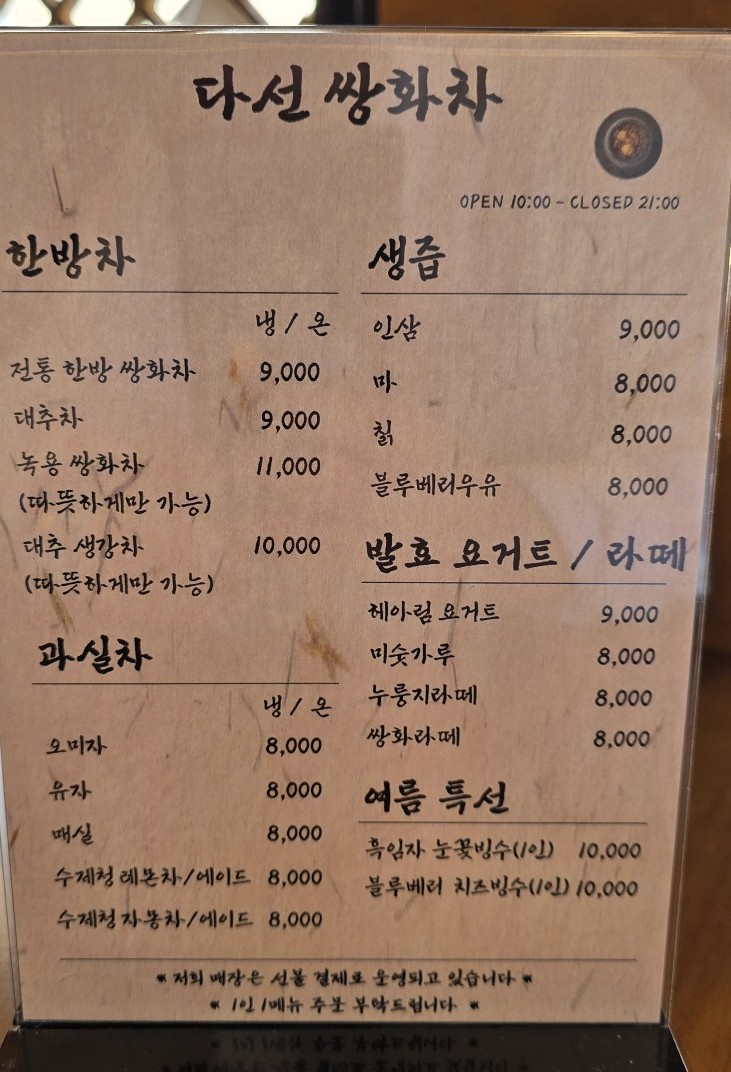 다선 쌍화차
OPEN 10:00 - CLOSED 21:00
한방차
냉 / 온
전통 한방 쌍화차 9,000
대추차 9,000
녹용 쌍화차 11,000
(따뜻하게만 가능)
대추 생강차 10,000
(따뜻하게만 가능)
과실차
냉 / 온
오미자 8,000
유자 8,000
매실 8,000
수제청 레몬차/에이드 8,000
수제청 자몽차/에이드 8,000
생즙
인삼 9,000
마 8,000
칡 8,000
블루베리우유 8,000
발효 요거트 / 라떼
헤아림 요거트 9,000
미숫가루 8,000
누룽지라떼 8,000
쌍화라떼 8,000
여름 특선
흑임자 눈꽃빙수(1인) 10,000
블루베리 치즈빙수(1인) 10,000
* 저희 매장은 선불 결제로 운영되고 있습니다 *
* 1인 1메뉴 주문 부탁드립니다 *